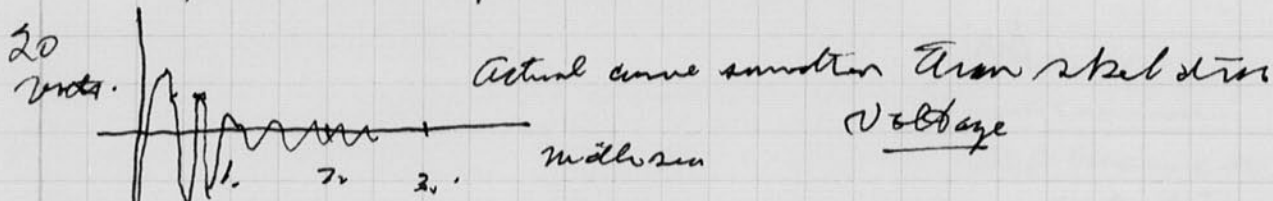 20
volts.
Actual curve smoother than sketched
Voltage
millisec
1. 2. 3.